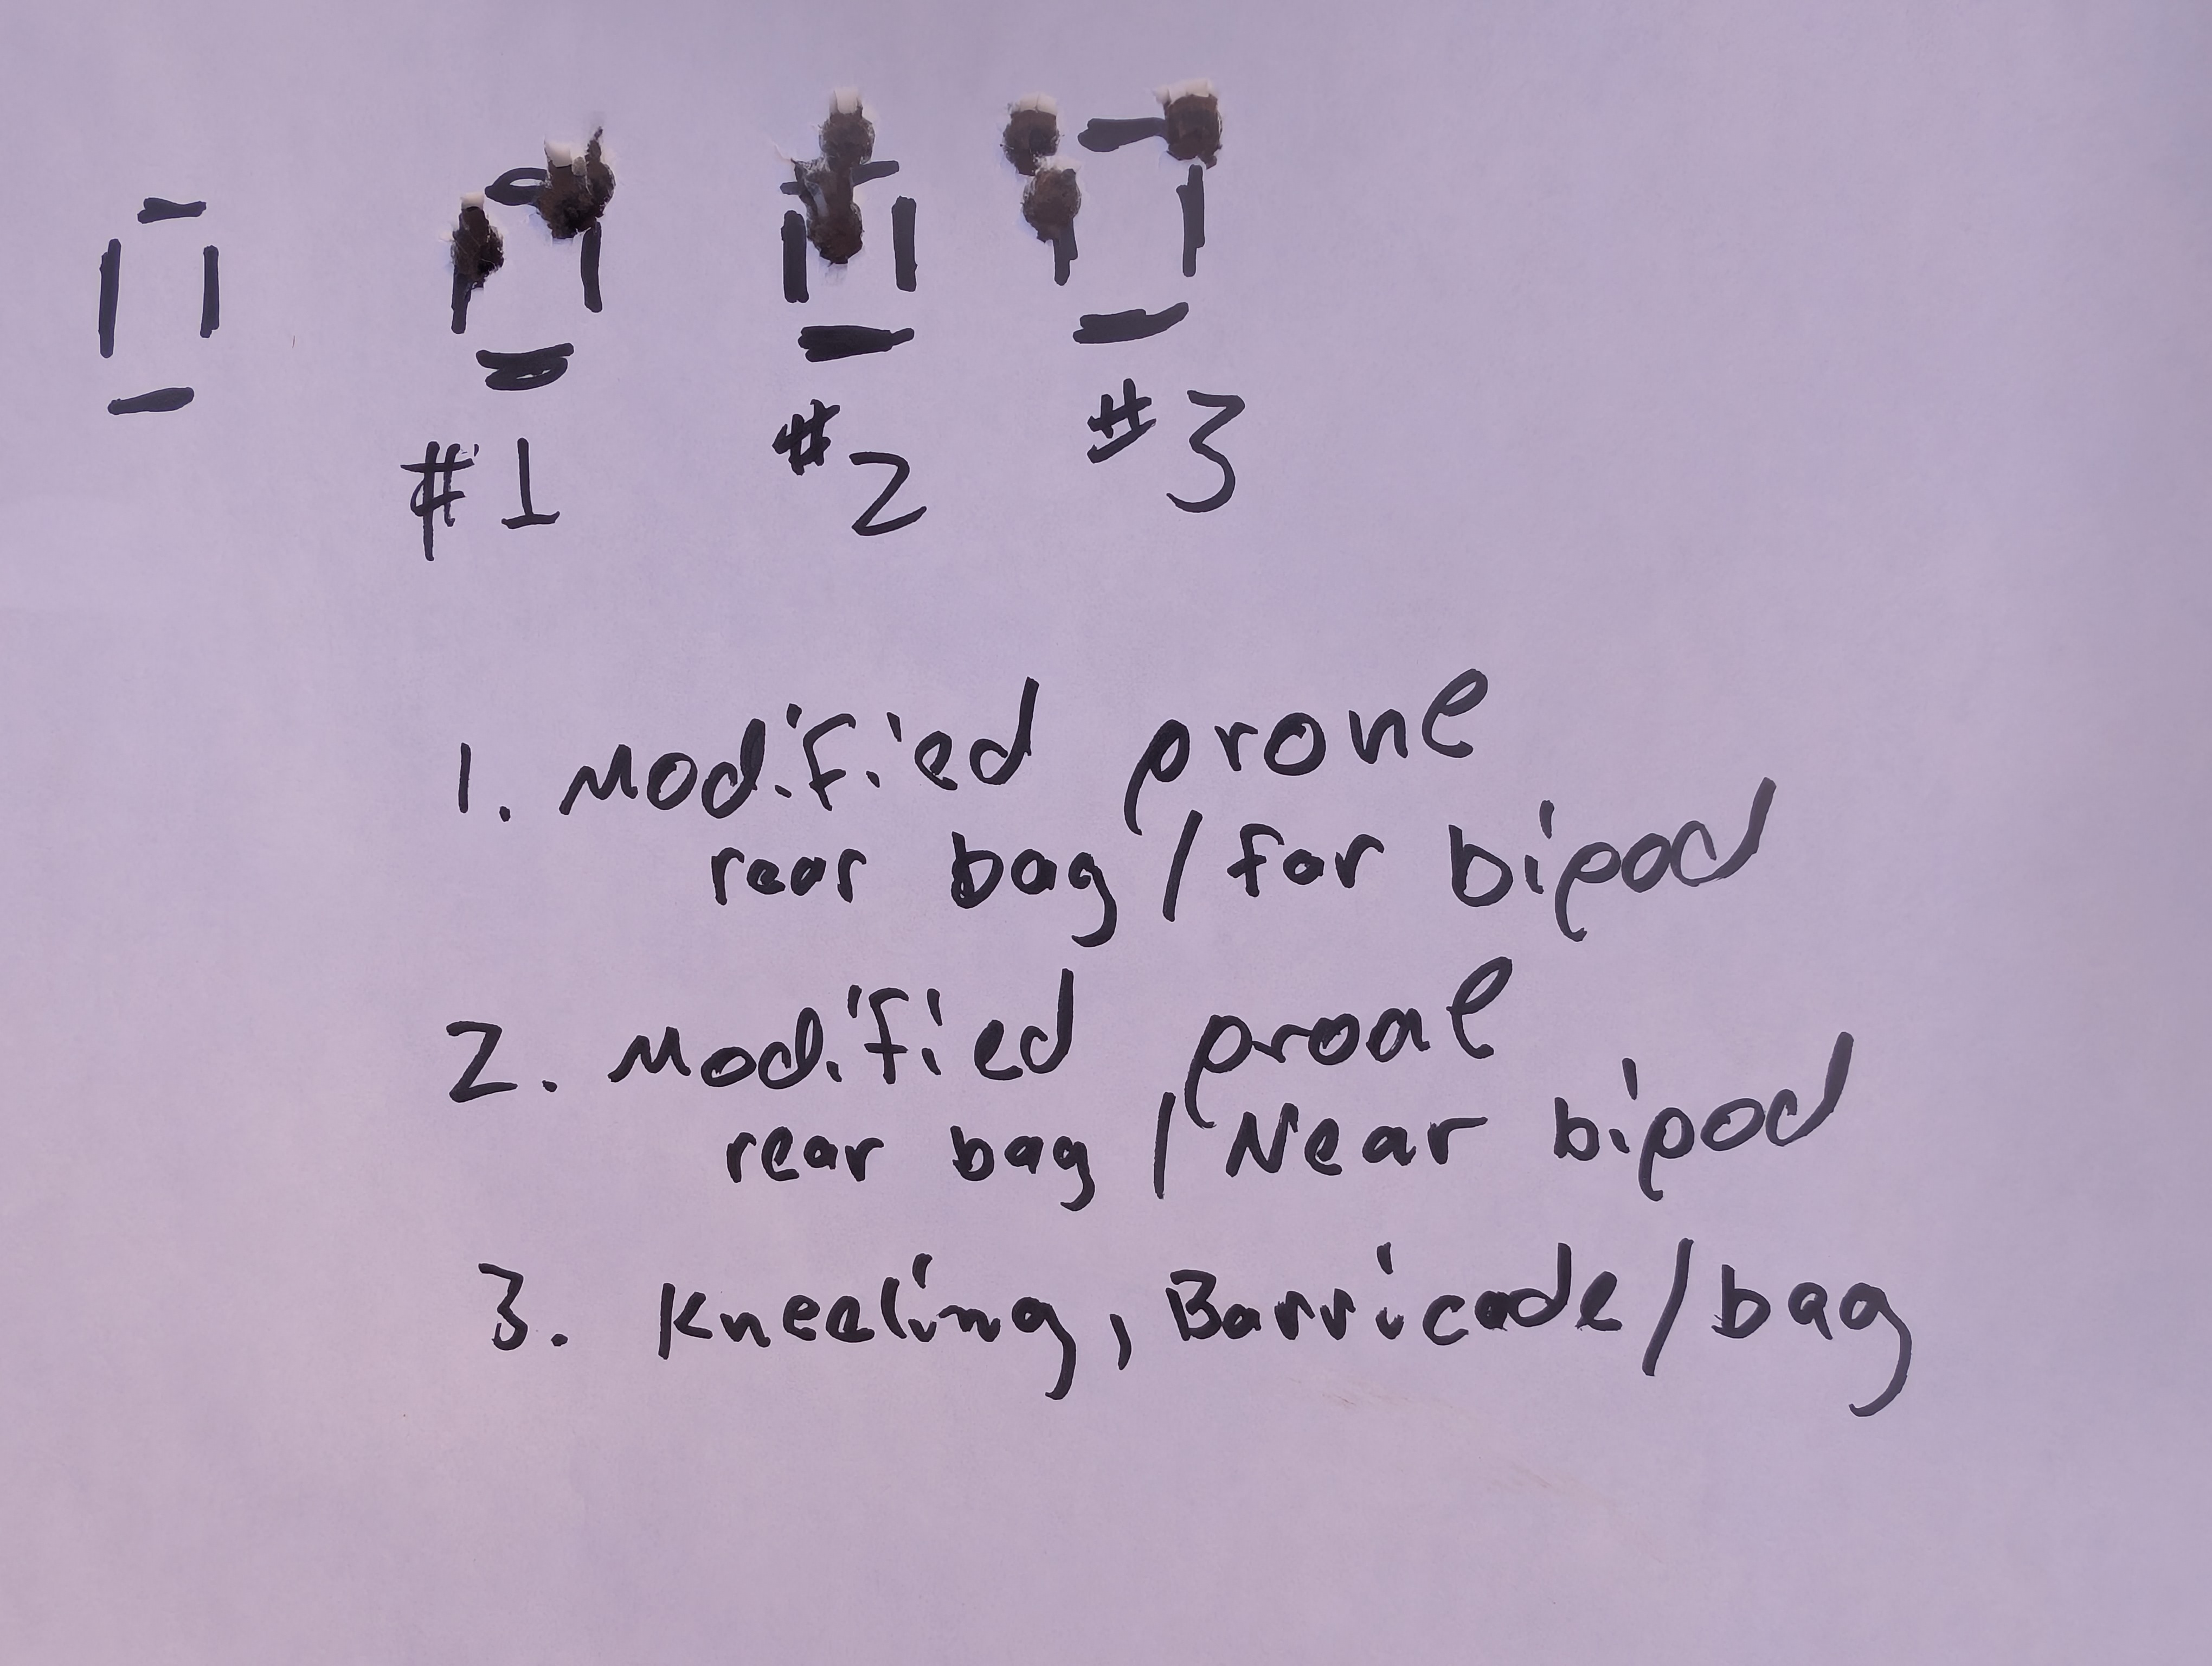 #1 #2 #3
1. Modified prone
rear bag / far bipod
2. Modified prone
rear bag / Near bipod
3. Kneeling, Barricade/bag